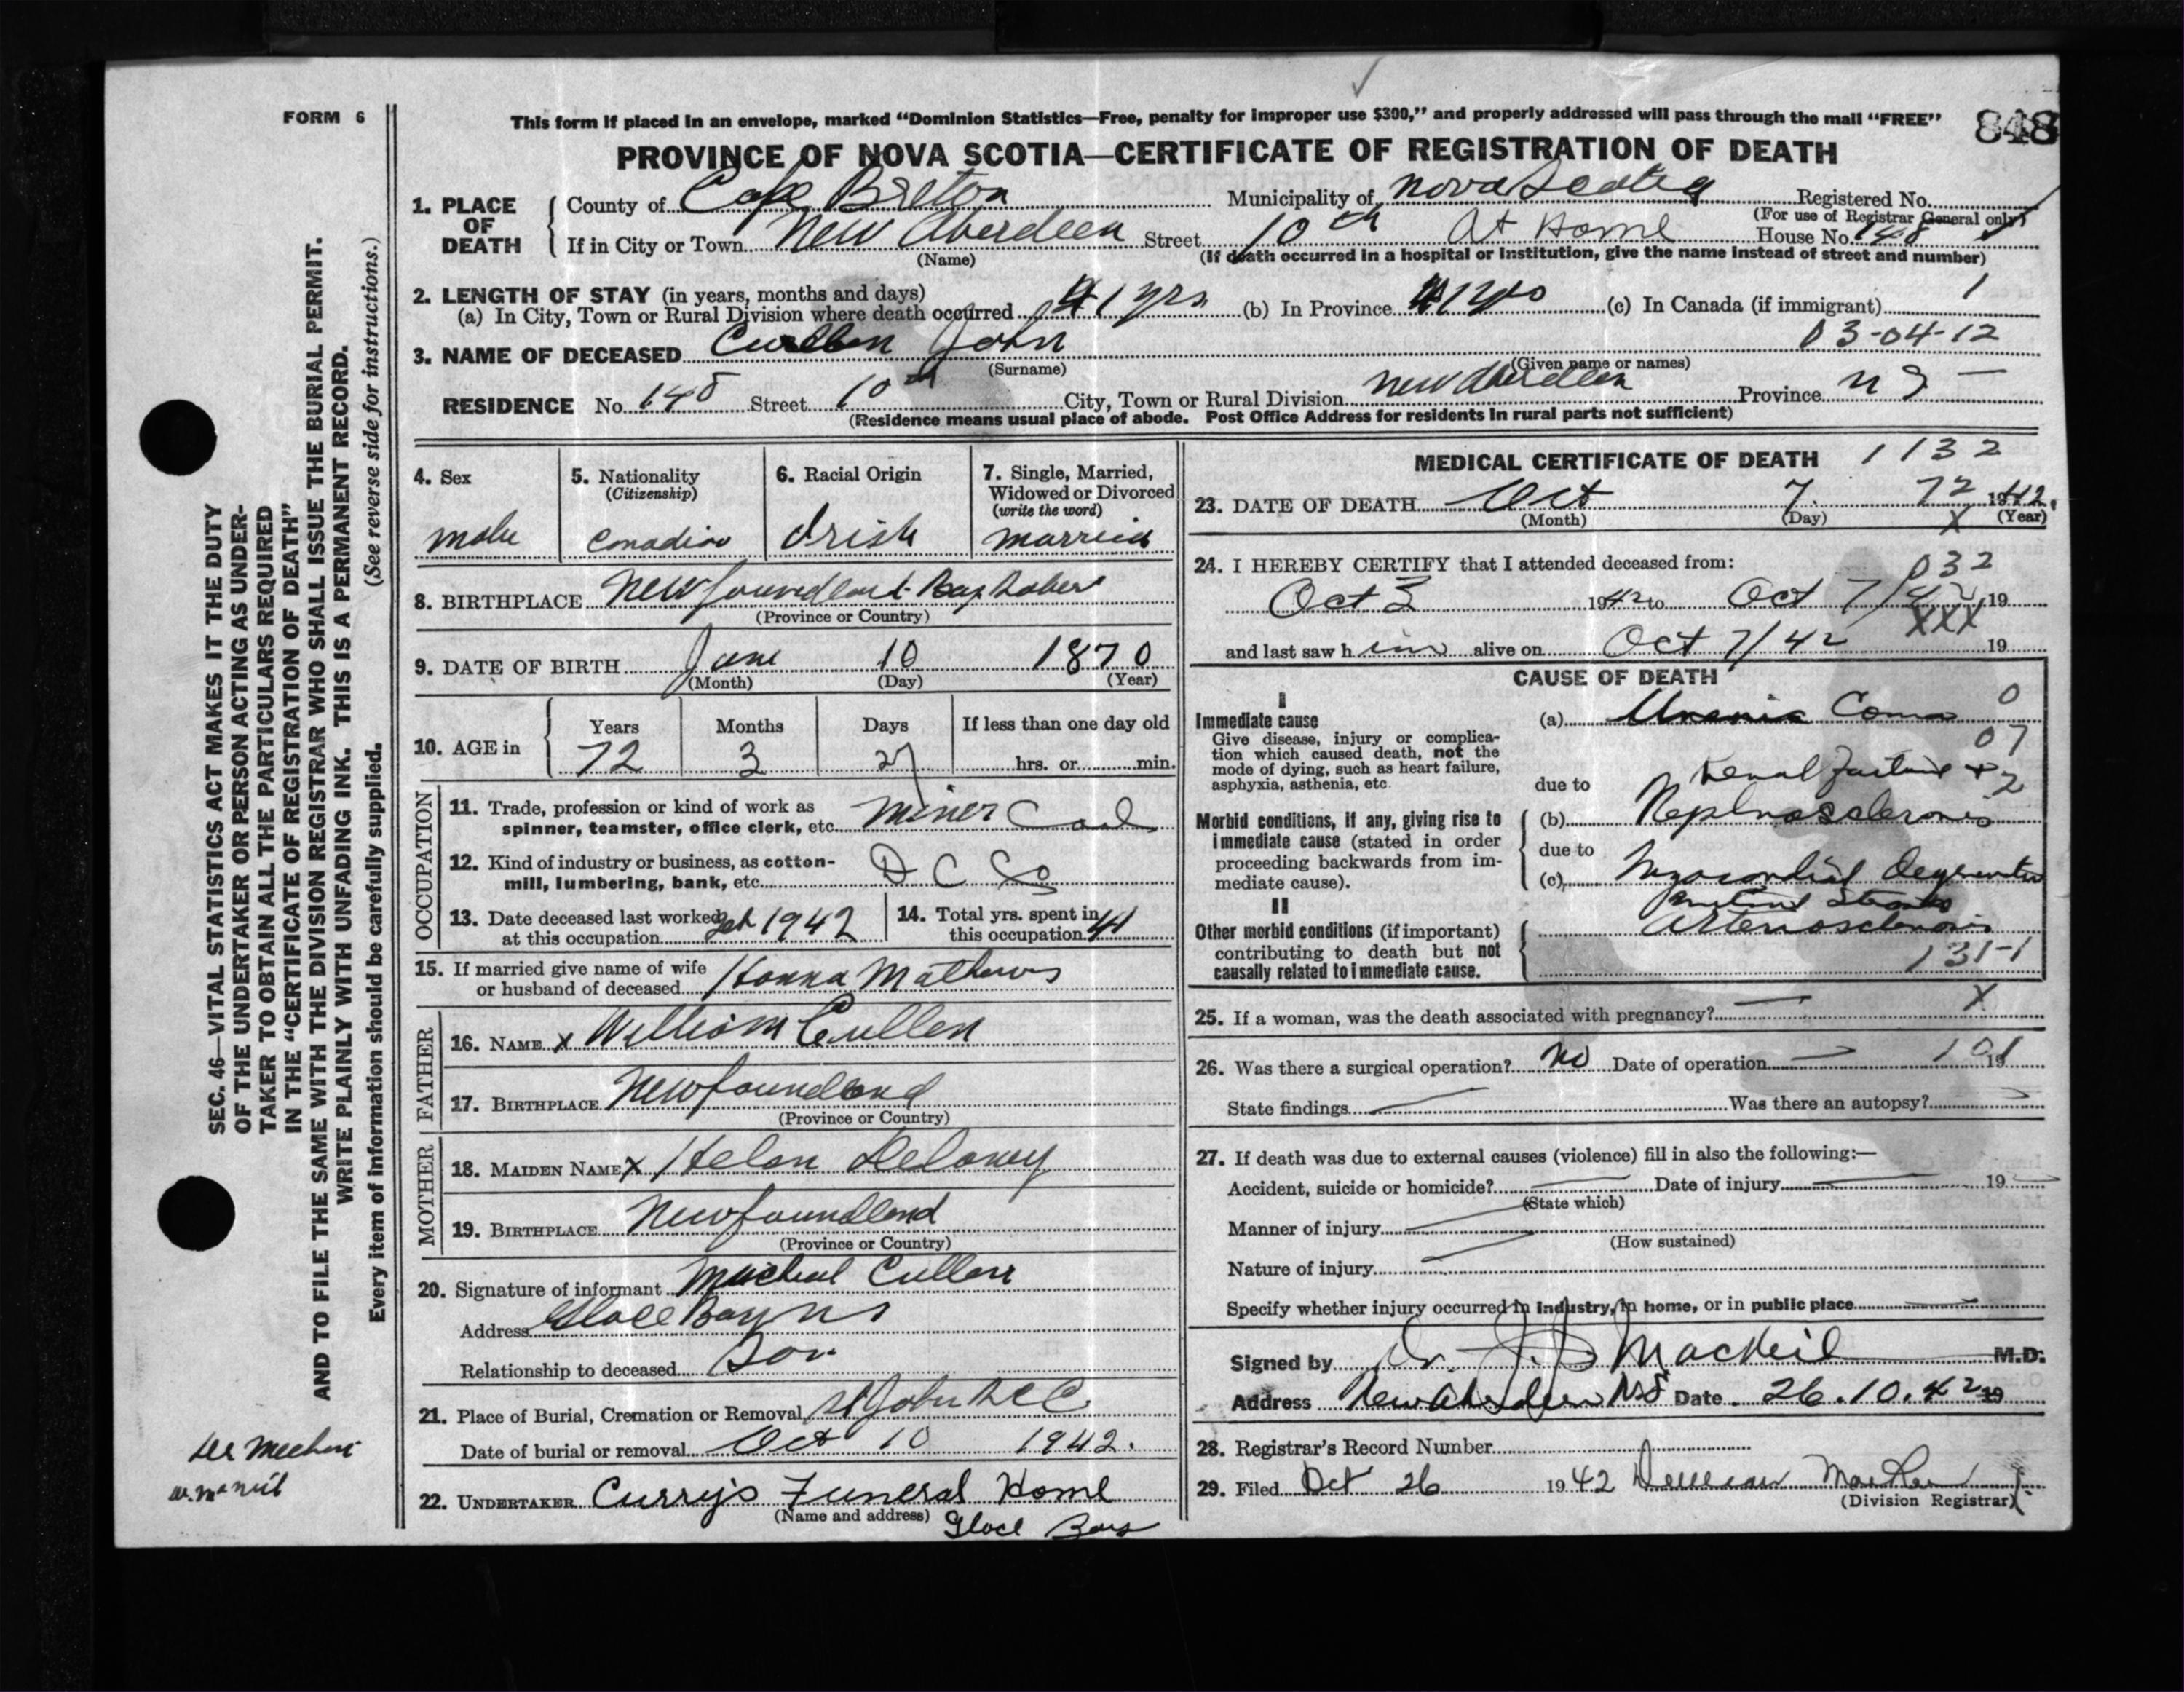 FORM 6
This form if placed in an envelope, marked "Dominion Statistics—Free, penalty for improper use $300," and properly addressed will pass through the mail "FREE"
848
PROVINCE OF NOVA SCOTIA—CERTIFICATE OF REGISTRATION OF DEATH
1. PLACE OF DEATH
County of Cape Breton Municipality of Nova Scotia Registered No.
(For use of Registrar General only)
If in City or Town New Aberdeen Street 10th At Home House No. 148
(Name) (If death occurred in a hospital or institution, give the name instead of street and number)
2. LENGTH OF STAY (in years, months and days)
(a) In City, Town or Rural Division where death occurred 41 yrs (b) In Province 41 yrs (c) In Canada (if immigrant) 1
03-04-12
3. NAME OF DECEASED Cullen John
(Surname) (Given name or names)
RESIDENCE No. 148 Street 10th City, Town or Rural Division New Aberdeen Province N S —
(Residence means usual place of abode. Post Office Address for residents in rural parts not sufficient)
4. Sex
male
5. Nationality
(Citizenship)
Canadian
6. Racial Origin
Irish
7. Single, Married,
Widowed or Divorced
(write the word)
married
8. BIRTHPLACE Newfoundland
(Province or Country)
9. DATE OF BIRTH June 10 1870
(Month) (Day) (Year)
10. AGE in
Years Months Days If less than one day old
72 3 27 hrs. or min.
OCCUPATION
11. Trade, profession or kind of work as
spinner, teamster, office clerk, etc. Miner Coal
12. Kind of industry or business, as cotton-
mill, lumbering, bank, etc. D C Co
13. Date deceased last worked
at this occupation 1942
14. Total yrs. spent in
this occupation 41
15. If married give name of wife
or husband of deceased Hanna Mathews
FATHER
16. NAME x William Cullen
17. BIRTHPLACE Newfoundland
(Province or Country)
MOTHER
18. MAIDEN NAME x Helen Delaney
19. BIRTHPLACE Newfoundland
(Province or Country)
20. Signature of informant Micheal Cullen
Address Glace Bay N S
Relationship to deceased Son
21. Place of Burial, Cremation or Removal St John
Date of burial or removal Oct 10 1942.
22. UNDERTAKER Curry's Funeral Home
(Name and address) Glace Bay
MEDICAL CERTIFICATE OF DEATH 1132
23. DATE OF DEATH Oct 7. 72 1942.
(Month) (Day) X (Year)
24. I HEREBY CERTIFY that I attended deceased from:
032
Oct 3 1942 to Oct 7/42 19
XXX
and last saw him alive on Oct 7/42 19
CAUSE OF DEATH
I
Immediate cause
Give disease, injury or complica-
tion which caused death, not the
mode of dying, such as heart failure,
asphyxia, asthenia, etc.
(a) Uremic Coma 0
07
due to Renal failure + 2
Morbid conditions, if any, giving rise to
immediate cause (stated in order
proceeding backwards from im-
mediate cause).
(b) Nephrosclerosis
due to
(c) Myocardial Degeneration
II
Other morbid conditions (if important)
contributing to death but not
causally related to immediate cause.
Arteriosclerosis
131-1
25. If a woman, was the death associated with pregnancy? — X
26. Was there a surgical operation? No Date of operation — 101 19
State findings — Was there an autopsy?
27. If death was due to external causes (violence) fill in also the following:—
Accident, suicide or homicide? — Date of injury — 19
(State which)
Manner of injury —
(How sustained)
Nature of injury —
Specify whether injury occurred in industry, in home, or in public place —
Signed by Dr. J. S MacNeil M.D.
Address New Aberdeen NS Date 26.10.42 19
28. Registrar's Record Number
29. Filed Oct 26 1942
(Division Registrar)
SEC. 46—VITAL STATISTICS ACT MAKES IT THE DUTY
OF THE UNDERTAKER OR PERSON ACTING AS UNDER-
TAKER TO OBTAIN ALL THE PARTICULARS REQUIRED
IN THE "CERTIFICATE OF REGISTRATION OF DEATH"
AND TO FILE THE SAME WITH THE DIVISION REGISTRAR WHO SHALL ISSUE THE BURIAL PERMIT.
WRITE PLAINLY WITH UNFADING INK. THIS IS A PERMANENT RECORD.
Every item of information should be carefully supplied. (See reverse side for instructions.)